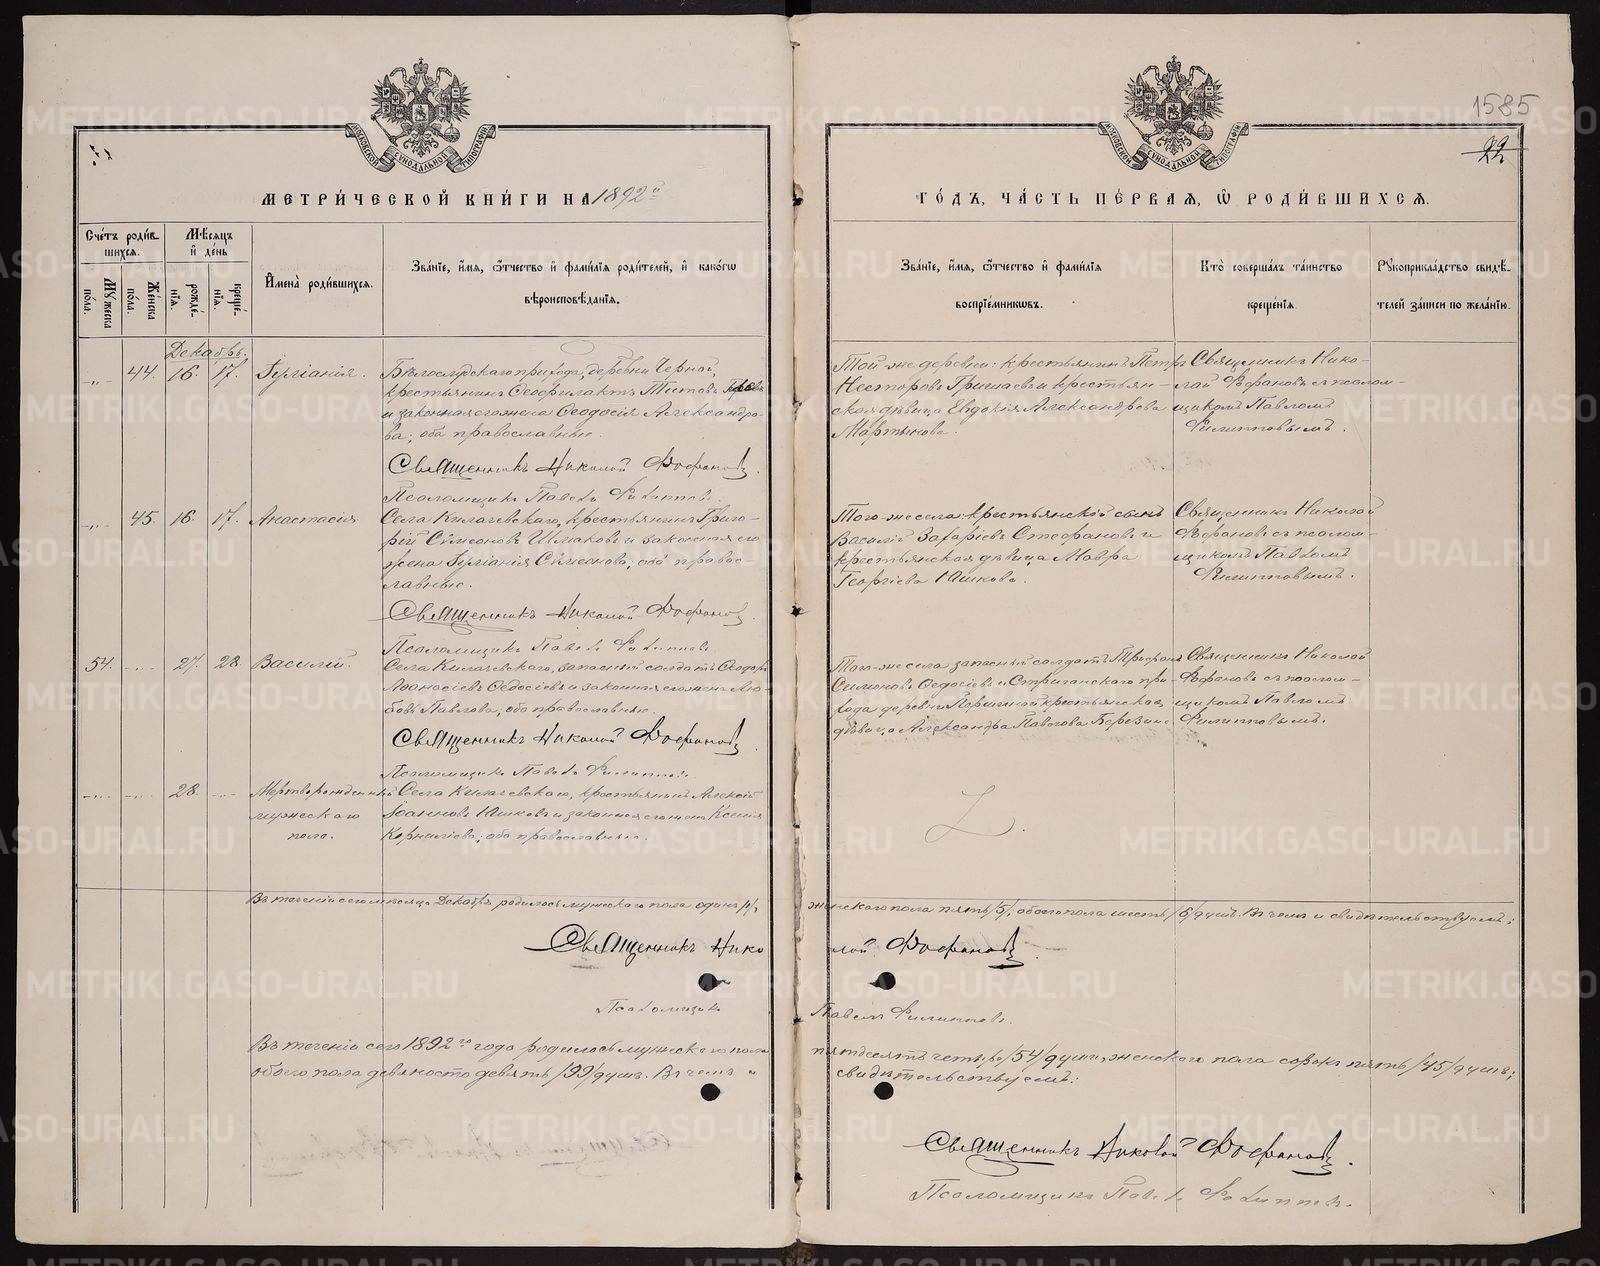 1585
22
МОСКОВСКОЙ СѴНОДАЛЬНОЙ ТИПОГРАФІИ
МОСКОВСКОЙ СѴНОДАЛЬНОЙ ТИПОГРАФІИ
МЕТРИ́ЧЕСКОЙ КНИ́ГИ НА 1892й
ГО́ДЪ, ЧА́СТЬ ПЕ́РВАЯ, Ѡ РОДИ́ВШИХСЯ.
Сче́тъ роди́в-
шихся.
Му́жеска по́ла.
Же́нска по́ла.
Мѣ́сяцъ
и де́нь
рожде́-
нія.
креще́-
нія.
Имена̀ роди́вшихся.
Зва́ніе, и́мя, ѻ́тчество и фами́лія роди́телей, и како́гѡ
вѣроисповѣ́данія.
Зва́ніе, и́мя, ѻ́тчество и фами́лія
воспріе́мникѡвъ.
Кто̀ соверша́лъ та́инство
креще́нія.
Рукоприкла́дство свидѣ́-
телей за́писи по жела́нію.
Декабрь.
44. 16. 17. Іуліанія.
Бѣлослудскаго прихода, деревни Черной,
крестьянинъ Ѳеофилактъ Титовъ
и законная его жена Ѳеодосія Александро-
ва; оба православные.
Той-же деревни: крестьянинъ Петръ
Несторовъ и крестьян-
ская дѣвица Евдокія Александрова
Мартынова.
Священникъ Нико-
лай Фофановъ съ псалом-
щикомъ Павломъ
Филипповымъ.
Священникъ Николай Фофановъ.
Псаломщикъ Павелъ Филипповъ.
45. 16. 17. Анастасія.
Села Килачевскаго, крестьянинъ Григо-
рій Сѵмеоновъ Шмаковъ и законная его
жена Іуліанія Сѵмеонова; оба правос-
лавные.
Того-же села: крестьянскій сынъ
Василій Захаріевъ Стефановъ и
крестьянская дѣвица Мавра
Георгіева Юшкова.
Священникъ Николай
Фофановъ съ псалом-
щикомъ Павломъ
Филипповымъ.
Священникъ Николай Фофановъ.
Псаломщикъ Павелъ Филипповъ.
54. 27. 28. Василій.
Села Килачевскаго, запасный солдатъ Ѳеодоръ
Аѳанасіевъ Ѳедосіевъ и законная его жена Лю-
бовь Павлова; оба православные.
Того-же села запасный солдатъ Трофимъ
Симоновъ Ѳедосіевъ и Стриганскаго при-
хода деревни Першиной крестьянская
дѣвица Александра Павлова Березина
Священникъ Николай
Фофановъ съ псалом-
щикомъ Павломъ
Филипповымъ.
Священникъ Николай Фофановъ.
Псаломщикъ Павелъ Филипповъ.
28. Мертворожденный
мужескаго
пола.
Села Килачевскаго, крестьянинъ Алексій
Іоанновъ Юшковъ и законная его жена Ксенія
Корниліева; оба православные.
Въ теченіи сего мѣсяца Декабря родилось мужескаго пола одинъ /1/, женскаго пола пять /5/, обоего пола шесть /6/ душъ. Въ чемъ и свидѣтельствуемъ:
Священникъ Николай Фофановъ.
Псаломщикъ Павелъ Филипповъ.
Въ теченіи сего 1892го года родилось мужескаго пола пятдесятъ четыре /54/ души, женскаго пола сорокъ пять /45/ душъ;
обоего пола девяносто девять /99/ душъ. Въ чемъ и свидѣтельствуемъ:
Священникъ Николай Фофановъ.
Псаломщикъ Павелъ Филипповъ.
METRIKI.GASO-URAL.RU